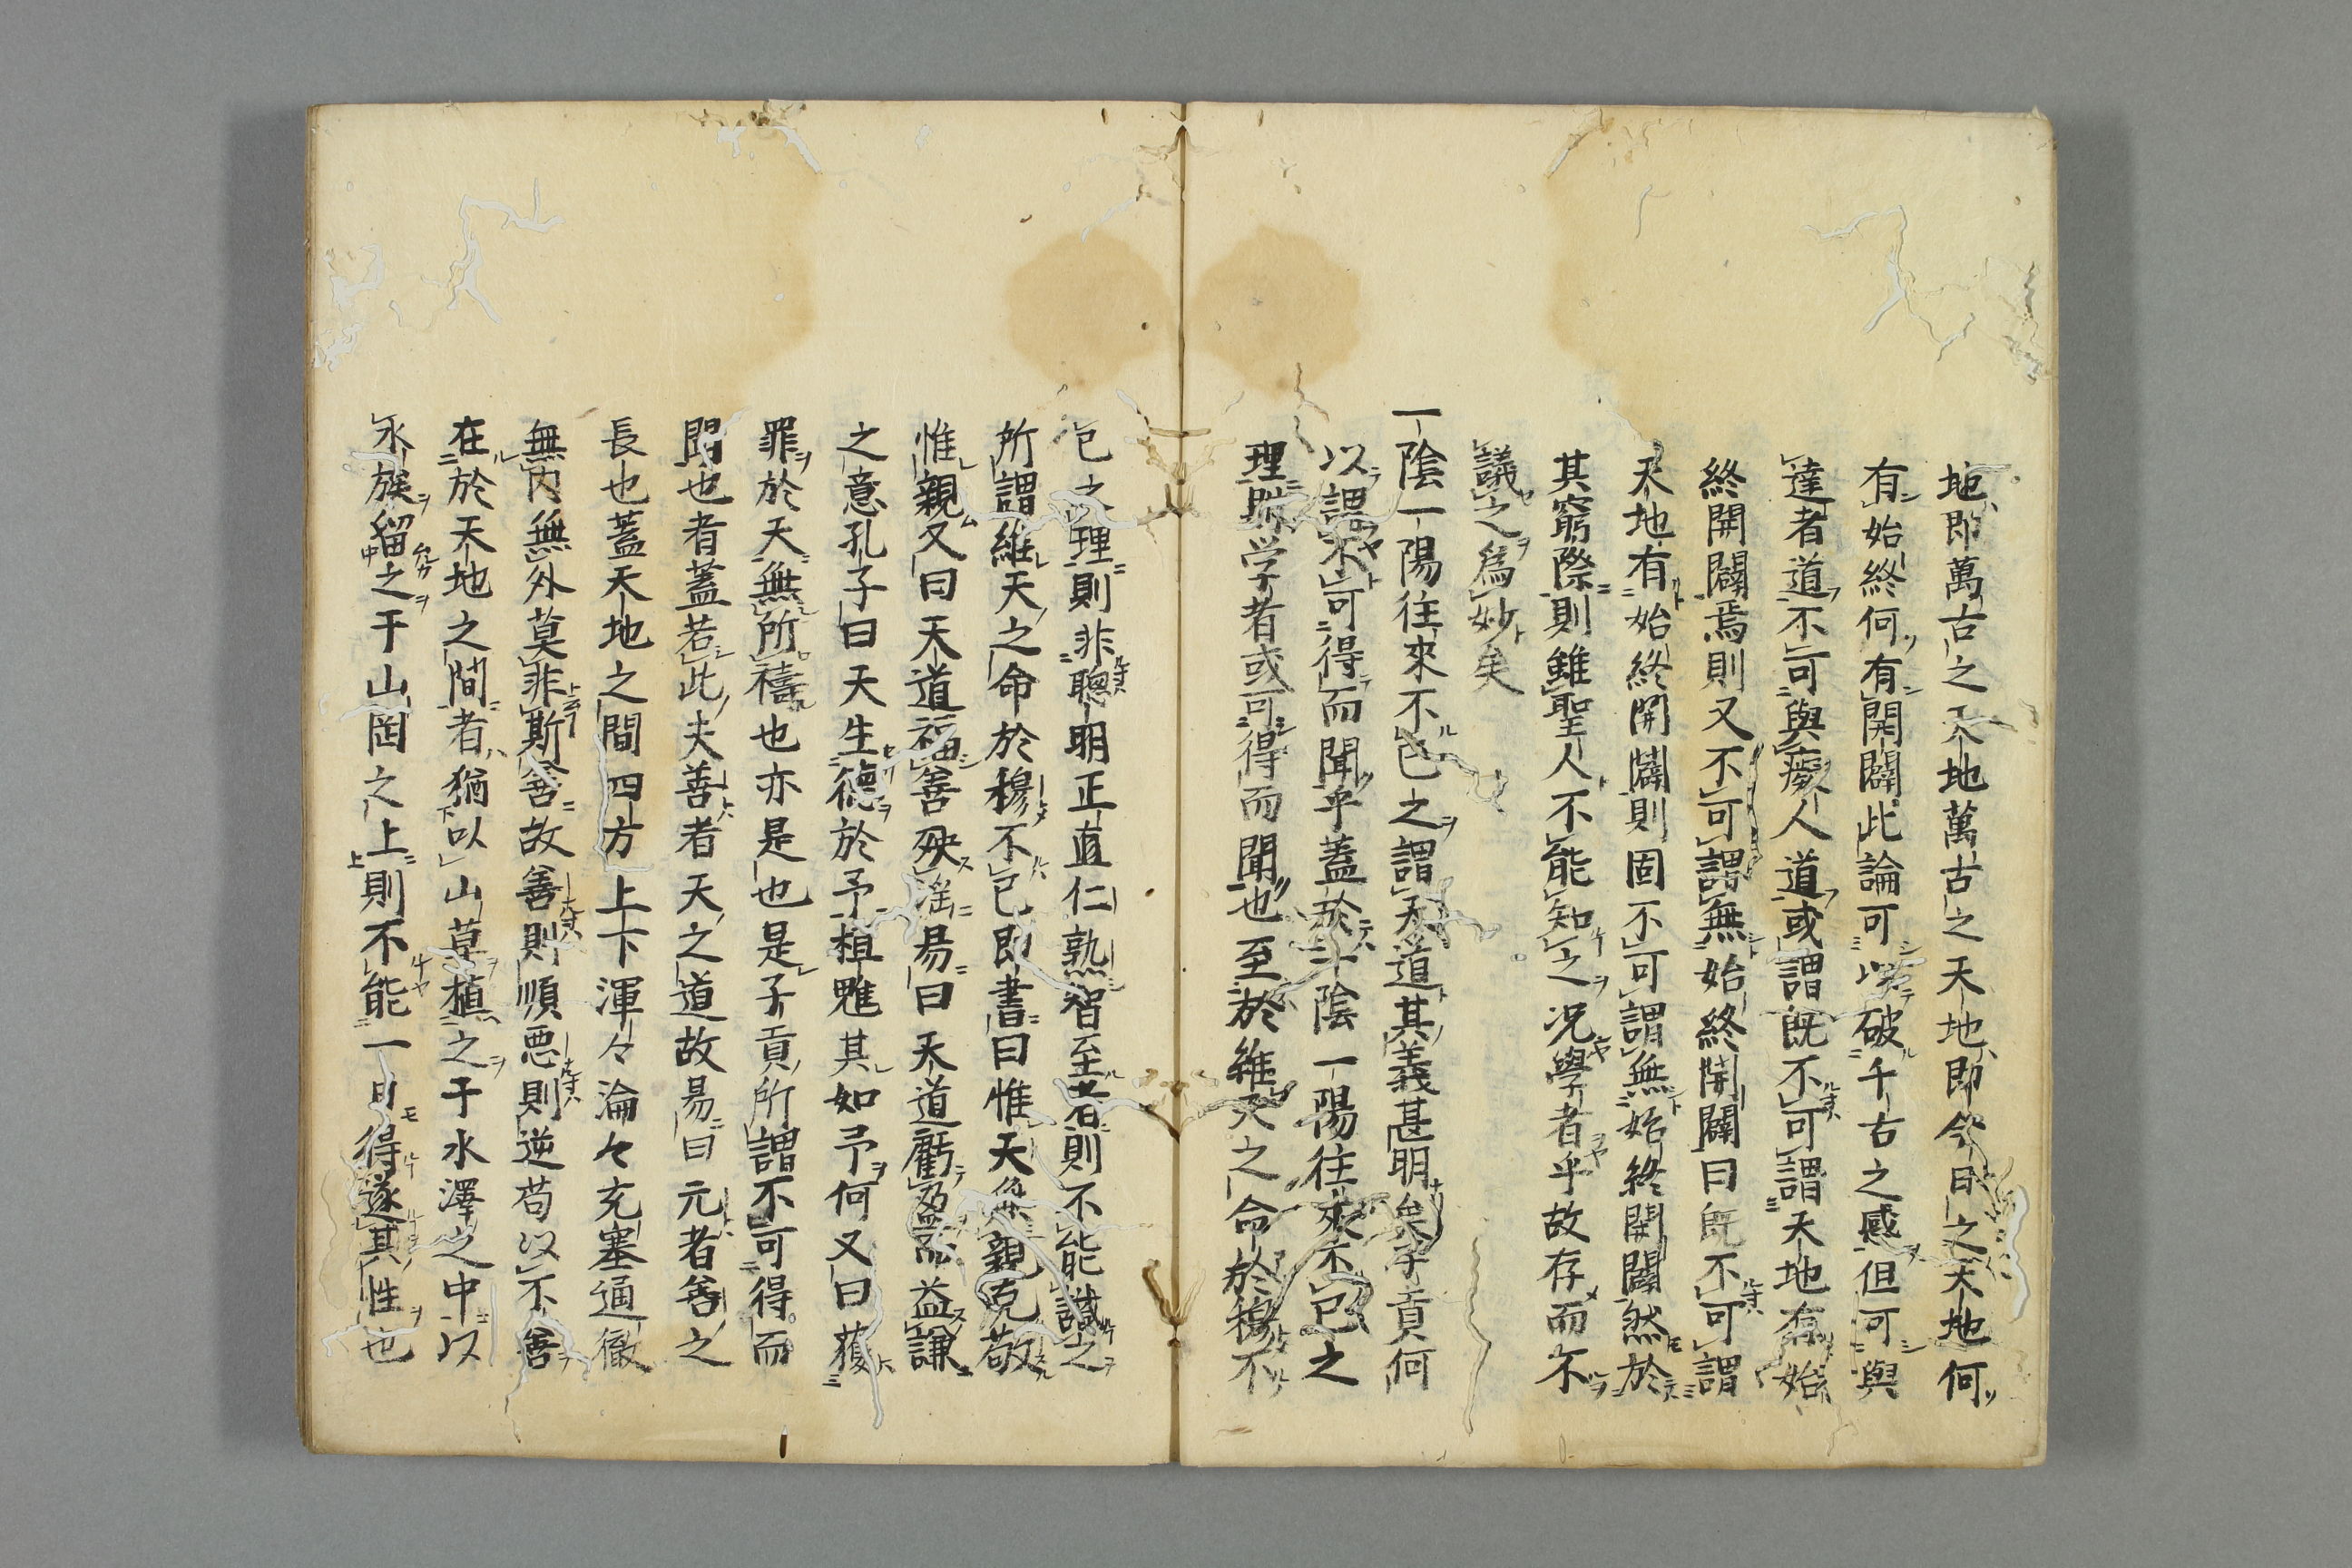 地即萬古之天地萬古之天地即今日之天地何
有始終何有開闢此論可以破千古之惑但可與
達者道不可與癡人道或謂既不可謂天地有始
終開闢焉則又不可謂無始終開闢曰既不可謂
天地有始終開闢則固不可謂無始終開闢然於
其窮際則雖聖人不能知之况學者乎故存而不
議之爲妙矣
一陰一陽往來不已之謂天道其義甚明矣子貢何
以謂不可得而聞乎蓋於一陰一陽往來不已之
理則学者或可得而聞也至於維天之命於穆不
已之理則非聰明正直仁熟智至者則不能識之
所謂維天之命於穆不已即書曰惟天無親克敬
惟親又曰天道福善殃淫易曰天道虧盈而益謙
之意孔子曰天生德於予桓魋其如予何又曰獲
罪於天無所禱也亦是也是子貢所謂不可得而
聞也者蓋若此夫善者天之道故易曰元者善之
長也蓋天地之間四方上下渾々淪々充塞通徹
無内無外莫非斯善故善則順悪則逆苟以不善
在於天地之間者猶以山草植之于水澤之中以
水族留之于山岡之上則不能一日得遂其性也